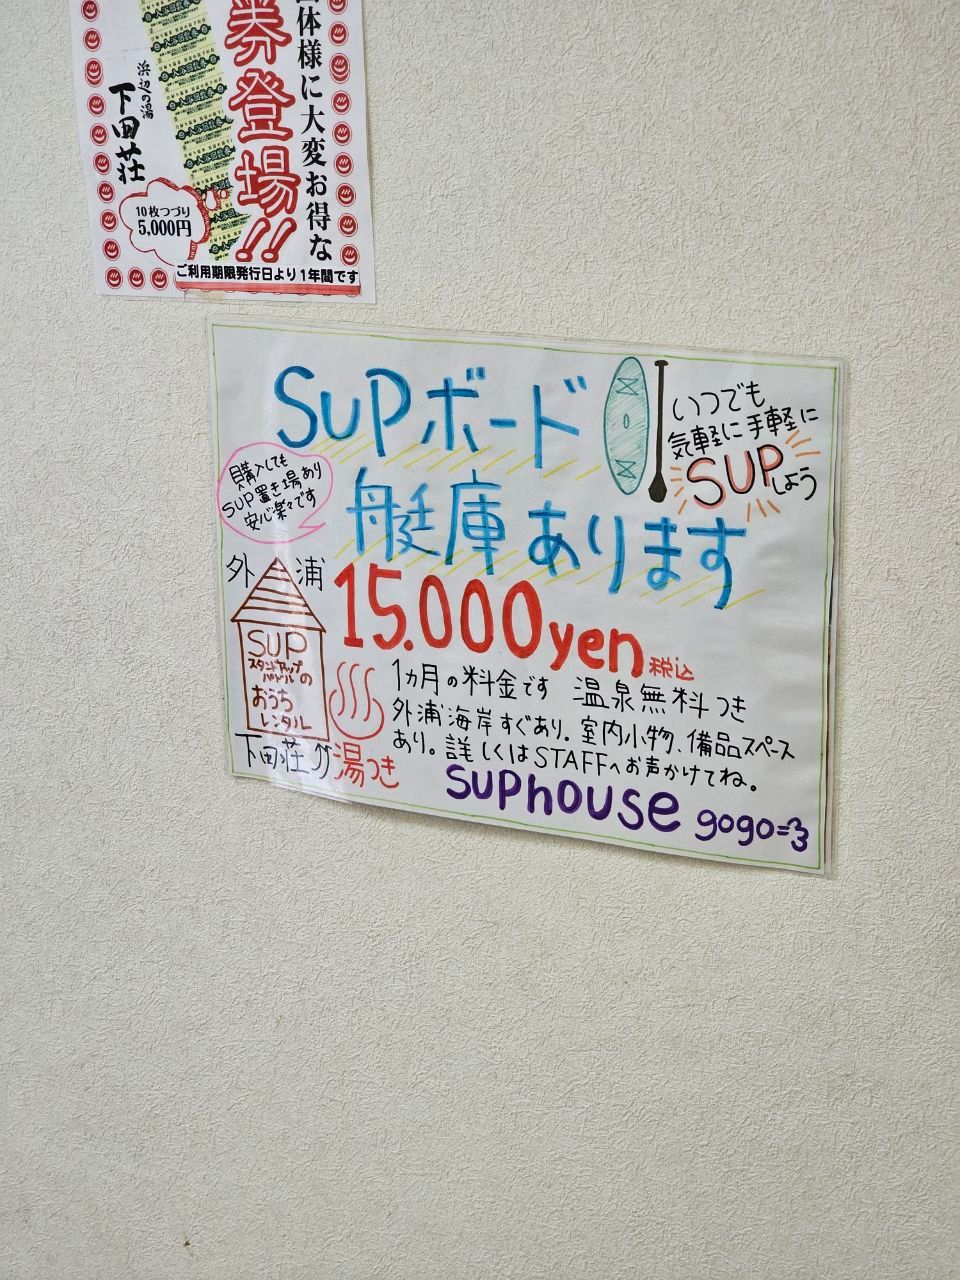 体様に大変お得な
券登場!!
浜辺の湯
下田荘
10枚つづり
5,000円
ご利用期限発行日より1年間です
SUPボード
艇庫あります
いつでも
気軽に手軽に
SUPしよう
購入しても
SUP置き場あり
安心楽々です
外浦
SUP
スタンドアップ
パドルの
おうち
レンタル
下田荘グ湯つき
15.000yen税込
1ヵ月の料金です 温泉無料つき
外浦海岸すぐあり。室内小物、備品スペース
あり。詳しくはSTAFFへお声かけてね。
SUPhouse gogo=3